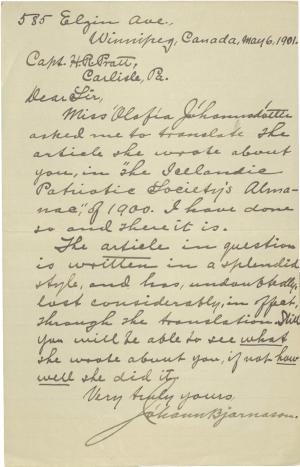 585 Elgin Ave.,
Winnipeg, Canada, May 6, 1901.
Capt. H. R. Pratt,
Carlisle, Pa.
Dear Sir,
Miss Olafía Jóhannsdóttir
asked me to translate the
article she wrote about
you, in "the Icelandic
Patriotic Society's Alma-
nac", of 1900. I have done
so and there it is.
The article in question
is written in a splendid
style, and has, undoubtedly,
lost considerably, in effect,
through the translation. Still
you will be able to see what
she wrote about you, if not how
well she did it.
Very truly yours
Jóhann Bjarnason.